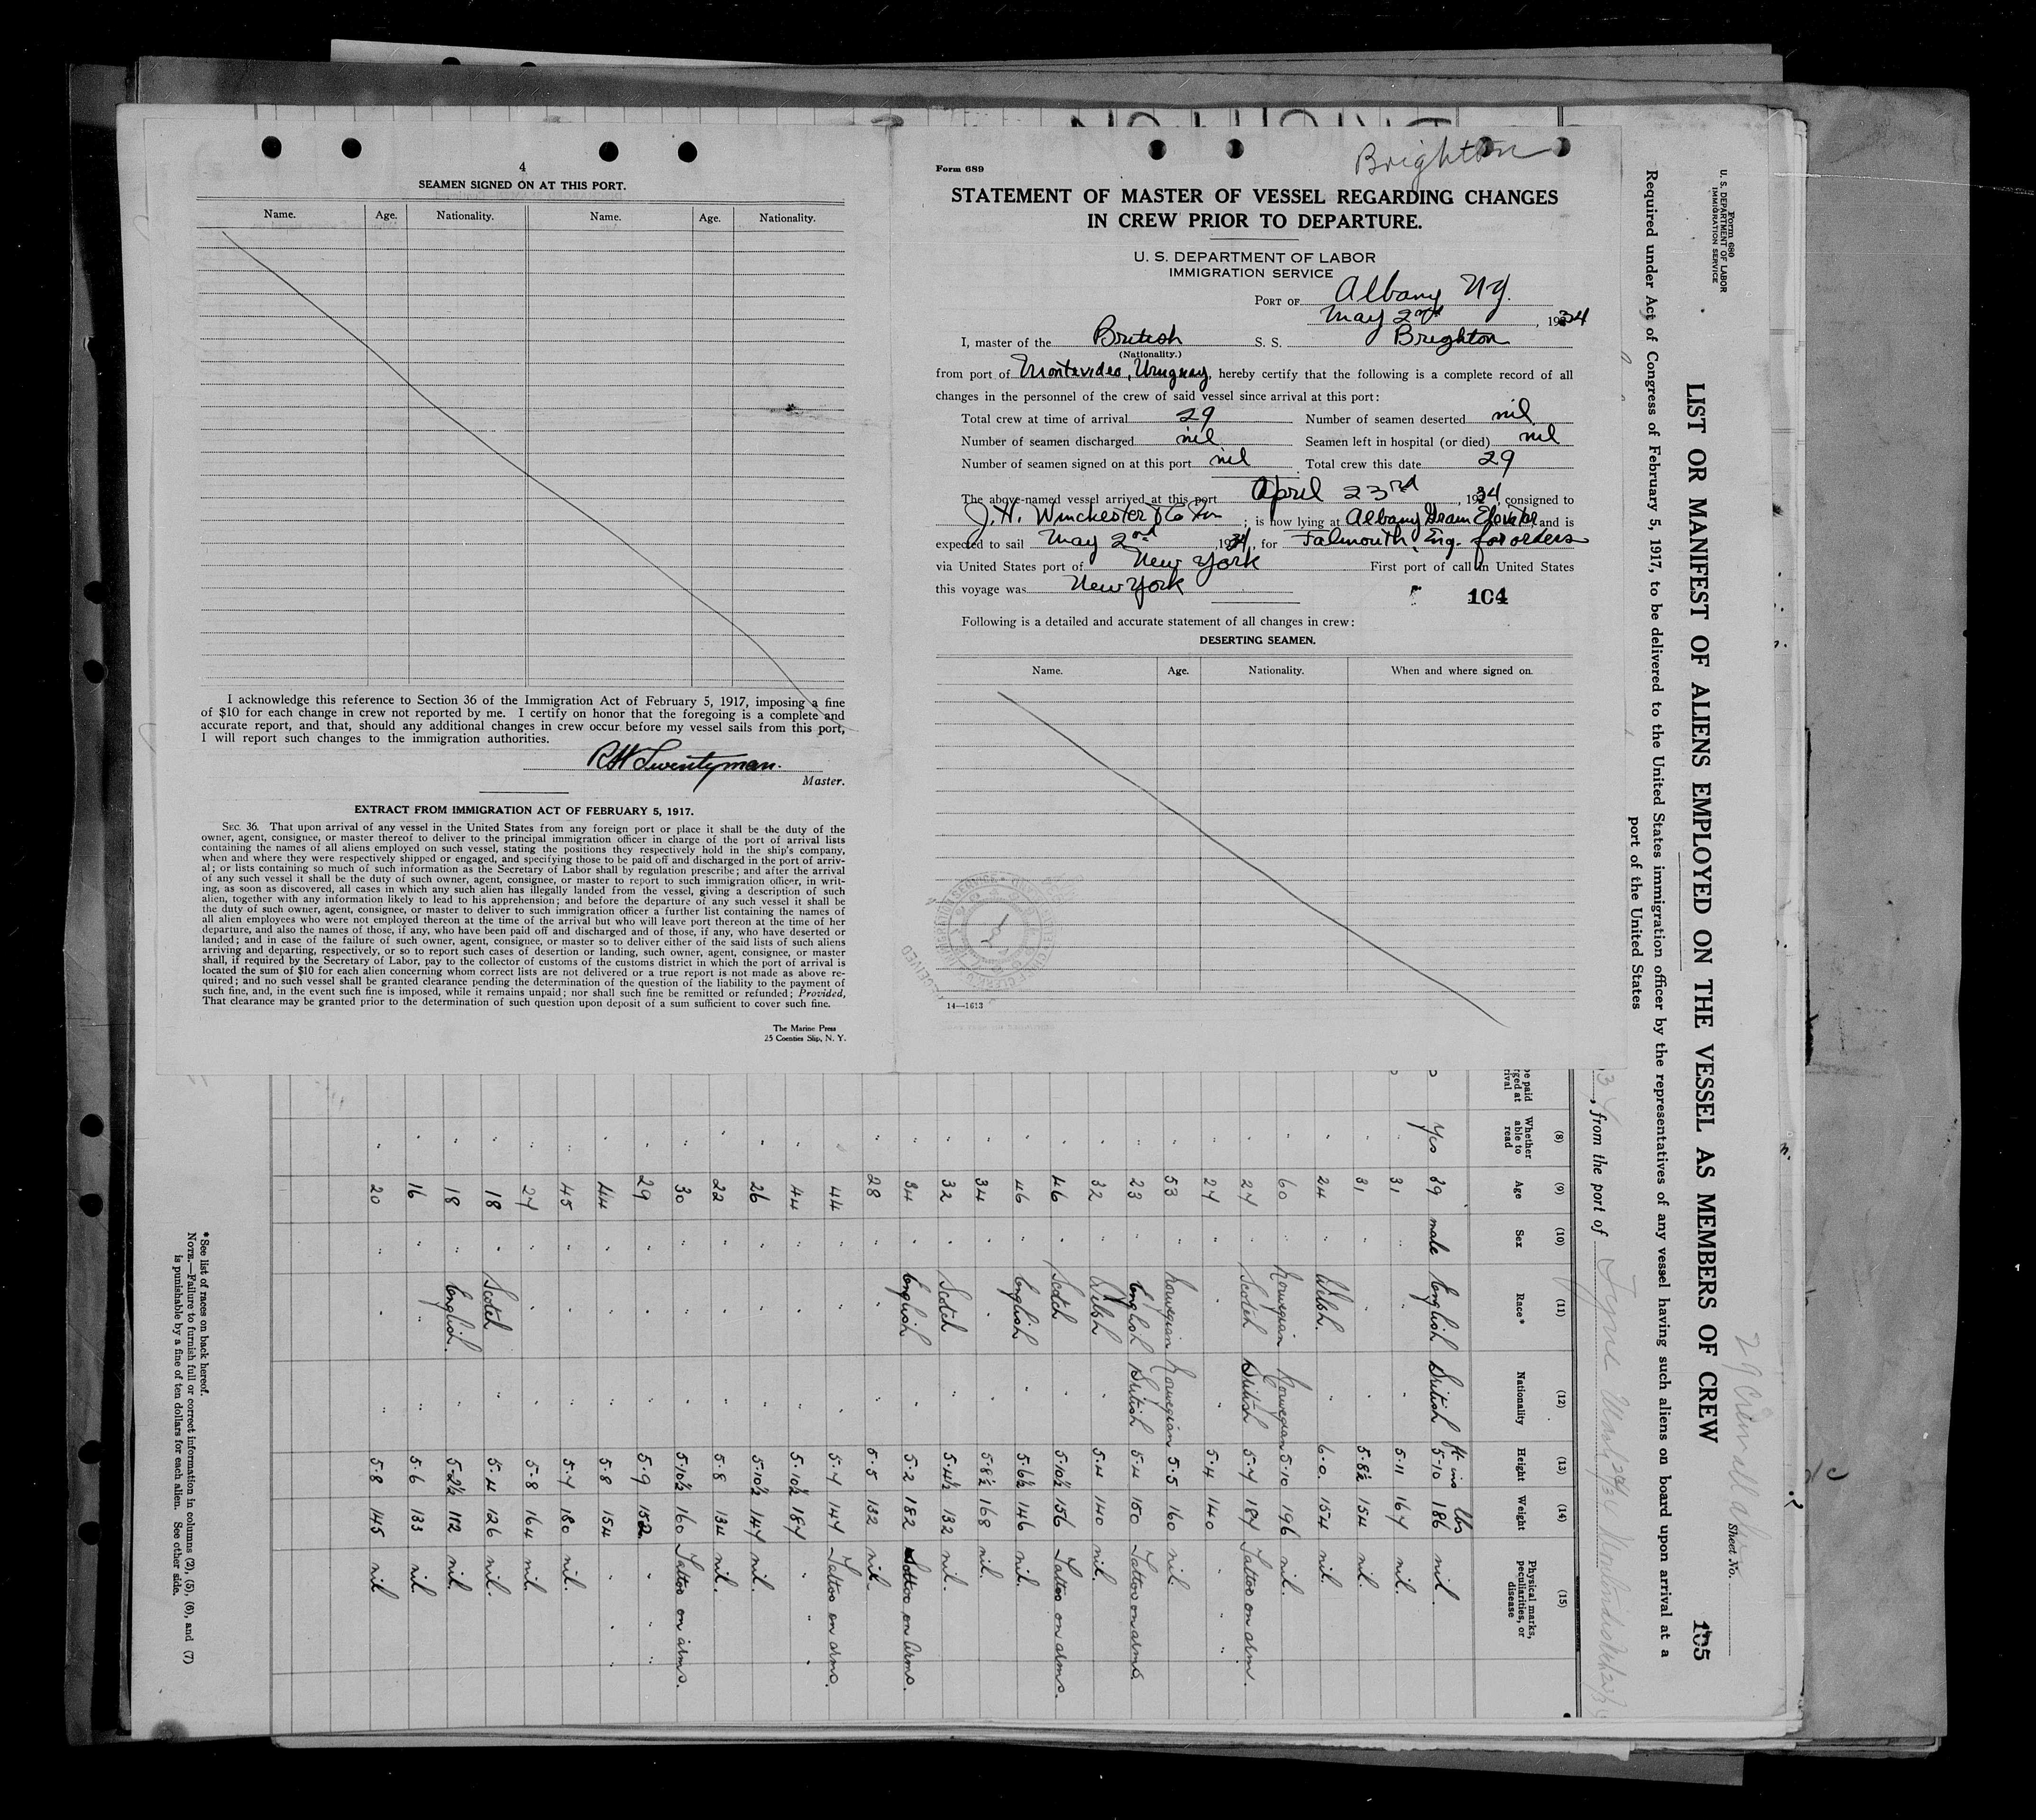 4
SEAMEN SIGNED ON AT THIS PORT.
Name. Age. Nationality. Name. Age. Nationality.
I acknowledge this reference to Section 36 of the Immigration Act of February 5, 1917, imposing a fine
of $10 for each change in crew not reported by me. I certify on honor that the foregoing is a complete and
accurate report, and that, should any additional changes in crew occur before my vessel sails from this port,
I will report such changes to the immigration authorities.
RH Twentyman.
Master.
EXTRACT FROM IMMIGRATION ACT OF FEBRUARY 5, 1917.
SEC. 36. That upon arrival of any vessel in the United States from any foreign port or place it shall be the duty of the
owner, agent, consignee, or master thereof to deliver to the principal immigration officer in charge of the port of arrival lists
containing the names of all aliens employed on such vessel, stating the positions they respectively hold in the ship's company,
when and where they were respectively shipped or engaged, and specifying those to be paid off and discharged in the port of arriv-
al; or lists containing so much of such information as the Secretary of Labor shall by regulation prescribe; and after the arrival
of any such vessel it shall be the duty of such owner, agent, consignee, or master to report to such immigration officer, in writ-
ing, as soon as discovered, all cases in which any such alien has illegally landed from the vessel, giving a description of such
alien, together with any information likely to lead to his apprehension; and before the departure of any such vessel it shall be
the duty of such owner, agent, consignee, or master to deliver to such immigration officer a further list containing the names of
all alien employees who were not employed thereon at the time of the arrival but who will leave port thereon at the time of her
departure, and also the names of those, if any, who have been paid off and discharged and of those, if any, who have deserted or
landed; and in case of the failure of such owner, agent, consignee, or master so to deliver either of the said lists of such aliens
arriving and departing, respectively, or so to report such cases of desertion or landing, such owner, agent, consignee, or master
shall, if required by the Secretary of Labor, pay to the collector of customs of the customs district in which the port of arrival is
located the sum of $10 for each alien concerning whom correct lists are not delivered or a true report is not made as above re-
quired; and no such vessel shall be granted clearance pending the determination of the question of the liability to the payment of
such fine, and, in the event such fine is imposed, while it remains unpaid; nor shall such fine be remitted or refunded; Provided,
That clearance may be granted prior to the determination of such question upon deposit of a sum sufficient to cover such fine.
The Marine Press
25 Coenties Slip, N. Y.
Brighton
Form 689
STATEMENT OF MASTER OF VESSEL REGARDING CHANGES
IN CREW PRIOR TO DEPARTURE.
U. S. DEPARTMENT OF LABOR
IMMIGRATION SERVICE
PORT OF Albany NY.
May 2nd, 1934
I, master of the British S. S. Brighton
(Nationality.)
from port of Montevideo, Uruguay, hereby certify that the following is a complete record of all
changes in the personnel of the crew of said vessel since arrival at this port:
Total crew at time of arrival 29 Number of seamen deserted nil
Number of seamen discharged nil Seamen left in hospital (or died) nil
Number of seamen signed on at this port nil Total crew this date 29
The above-named vessel arrived at this port April 23rd, 1934, consigned to
J. H. Winchester & Co Inc; is now lying at Albany Grain Elevator, and is
expected to sail May 2nd, 1934, for Falmouth, Eng. for orders
via United States port of New York First port of call in United States
this voyage was New York
104
Following is a detailed and accurate statement of all changes in crew:
DESERTING SEAMEN.
Name. Age. Nationality. When and where signed on.
RECEIVED
14—1613
Form 680
U. S. DEPARTMENT OF LABOR
IMMIGRATION SERVICE
29 Crew all
Sheet No.
LIST OR MANIFEST OF ALIENS EMPLOYED ON THE VESSEL AS MEMBERS OF CREW 105
Required under Act of Congress of February 5, 1917, to be delivered to the United States immigration officer by the representatives of any vessel having such aliens on board upon arrival at a
port of the United States
, from the port of Tyne
(8) (9) (10) (11) (12) (13) (14) (15)
Whether able to read Age Sex Race* Nationality Height Weight Physical marks, peculiarities, or disease
ft ins lbs
Yes 39 male English British 5-10 186 nil.
" 31 " " " 5-11 167 nil.
" 31 " " " 5-8½ 154 nil.
" 24 " Welsh. " 6-0 154 nil.
" 60 " Norwegian Norwegian 5-10 196 nil.
" 27 " Scotch British 5-7 187 Tattoo on arm.
" 27 " " " 5-4 140 " "
" 53 " Norwegian Norwegian 5-5 160 nil.
" 23 " English British 5-4 150 Tattoo on arms.
" 32 " Welsh " 5-4 140 nil.
" 46 " Scotch " 5-10½ 156 Tattoo on arms.
" 46 " English " 5-6½ 146 nil.
" 34 " " " 5-8½ 168 nil.
" 32 " Scotch " 5-4½ 132 nil.
" 34 " English " 5-2 182 Tattoo on Arms.
" 28 " " " 5-5 132 nil.
" 44 " " " 5-7 147 Tattoo on arms.
" 44 " " " 5-10½ 187 " " "
" 26 " " " 5-10½ 147 nil.
" 22 " " " 5-8 134 nil.
" 30 " " " 5-10½ 160 Tattoo on arms.
" 29 " " " 5-9 152 " " "
" 44 " " " 5-8 154 " " "
" 45 " " " 5-7 180 nil.
" 27 " " " 5-8 164 nil.
" 18 " Scotch " 5-4 126 nil.
" 18 " English. " 5-2½ 112 nil.
" 16 " " " 5-6 133 nil.
" 20 " " " 5-8 145 nil
*See list of races on back hereof.
NOTE.—Failure to furnish full or correct information in columns (2), (5), (6), and (7)
is punishable by a fine of ten dollars for each alien. See other side.